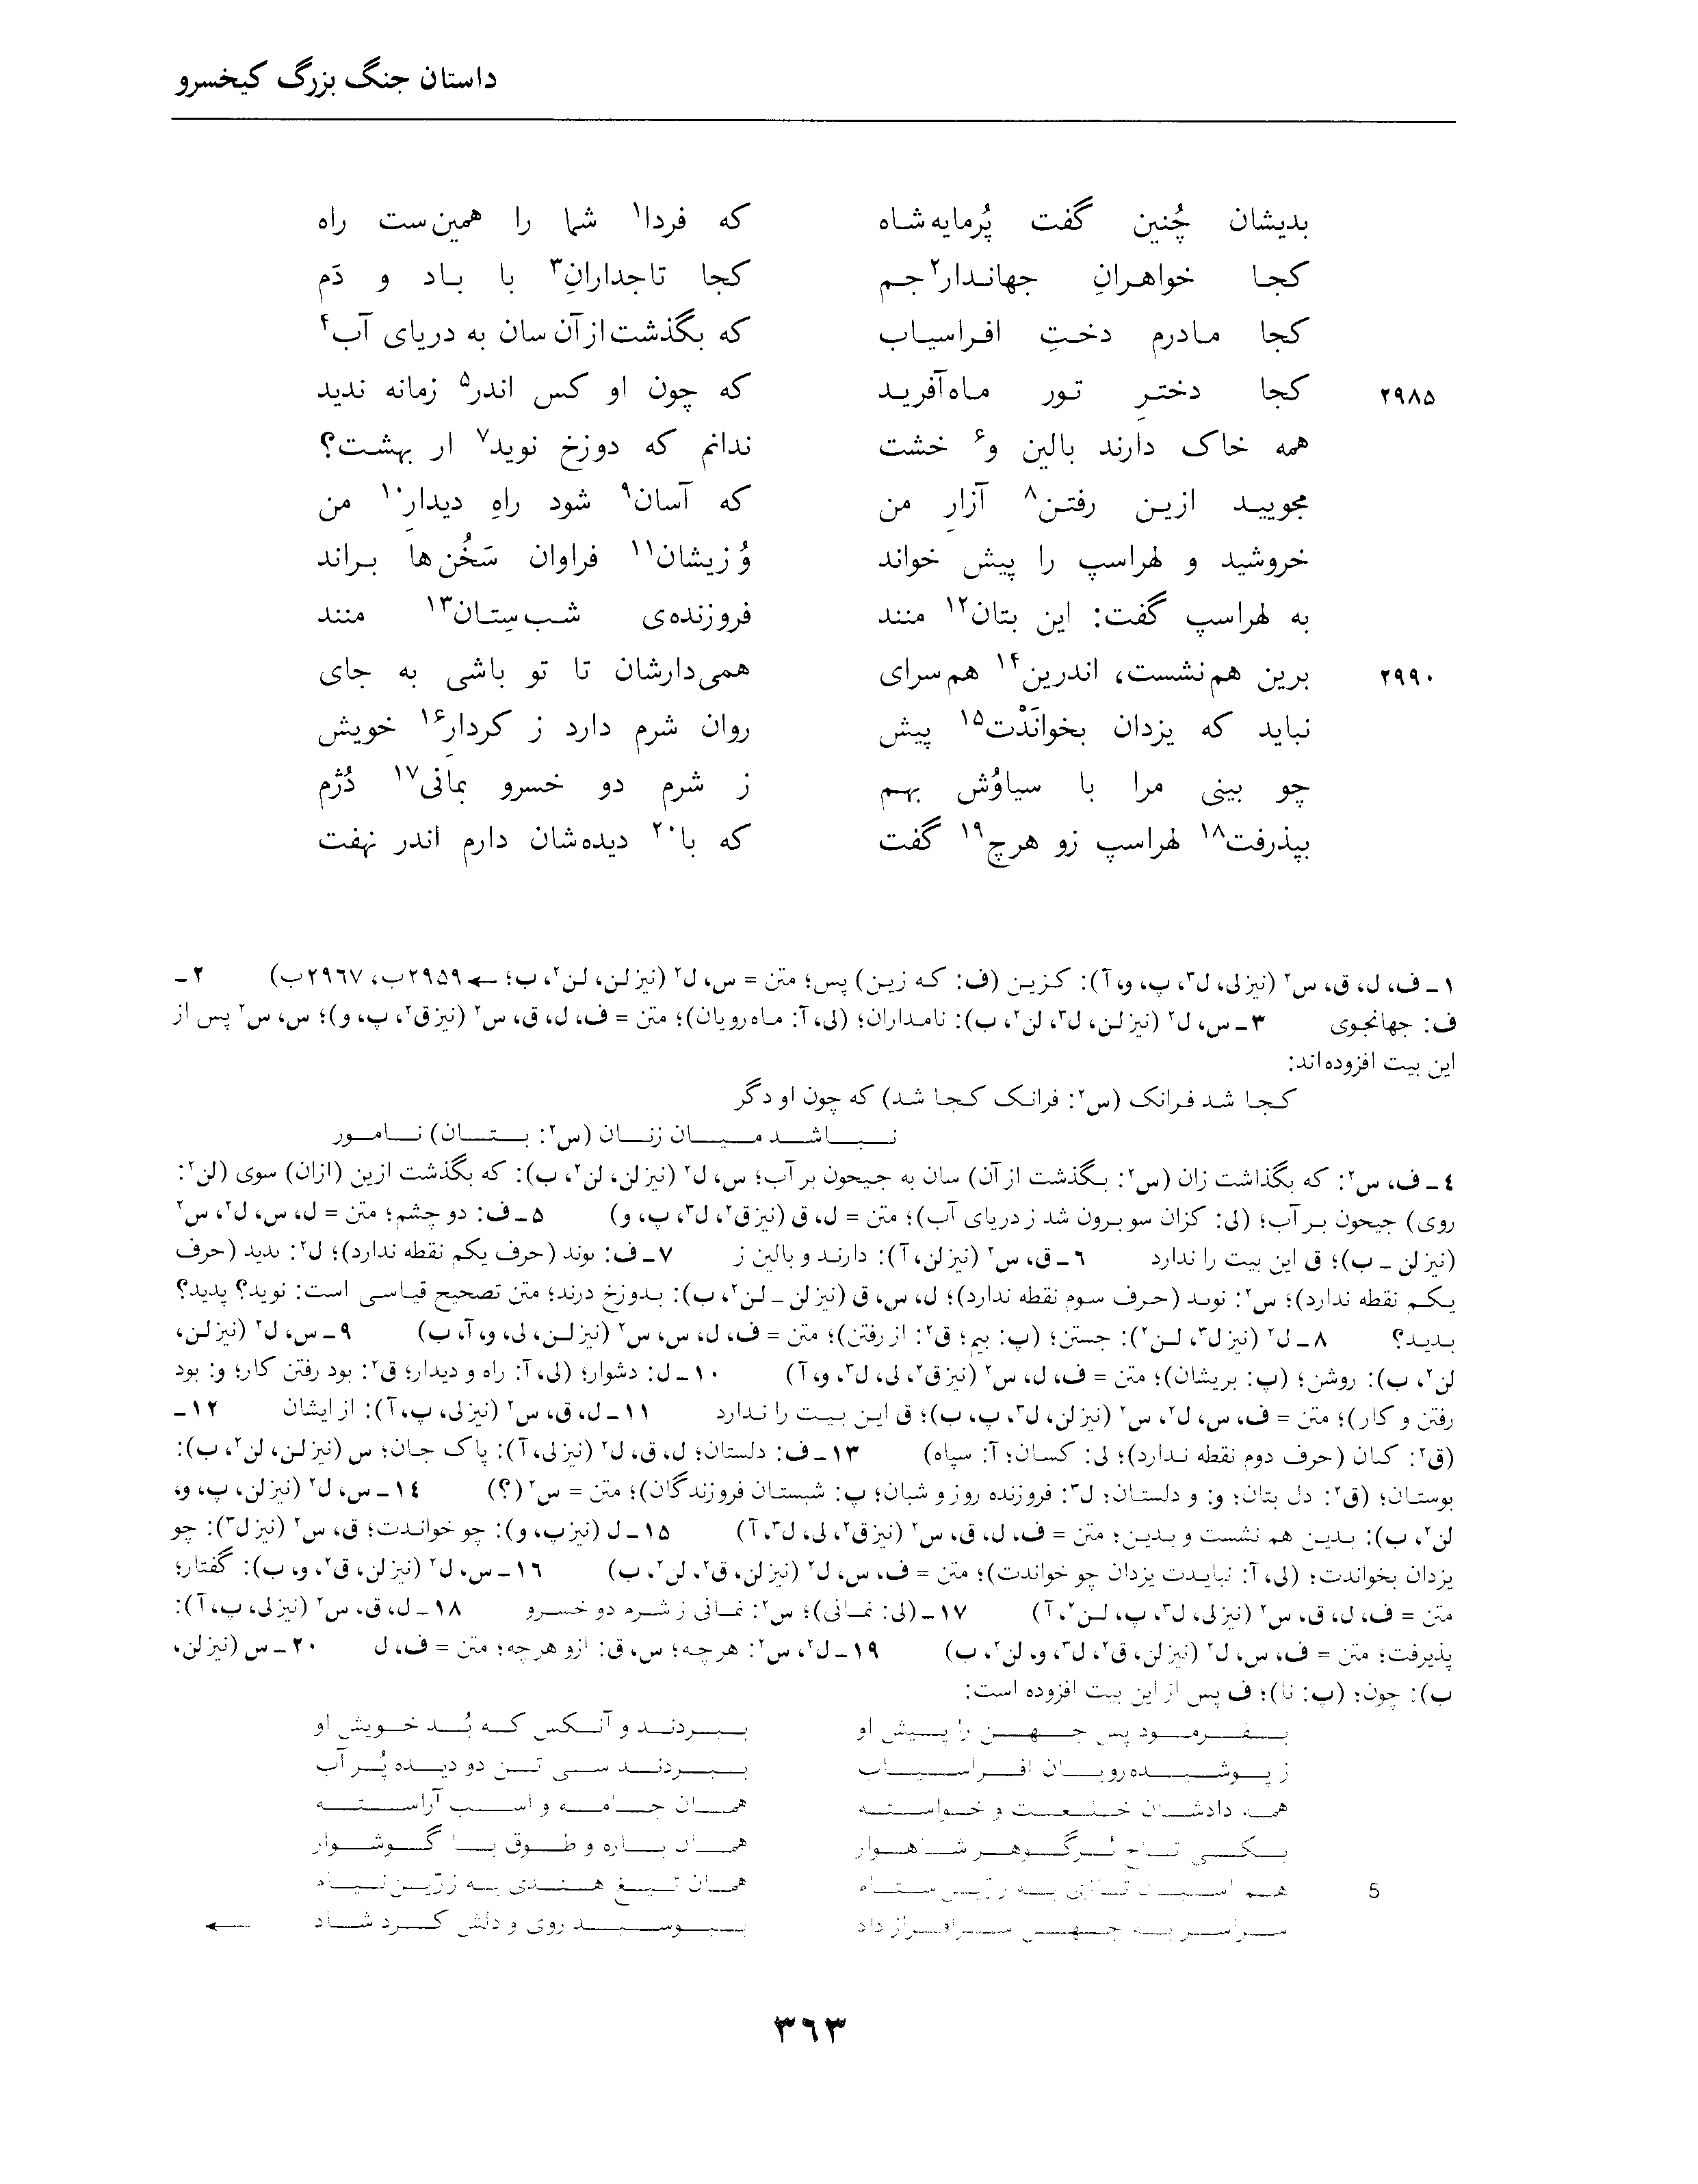 داستان جنگ بزرگ کیخسرو
بدیشان چُنین گفت پُرمایه‌شاه که فردا۱ شما را همین‌ست راه
کجا خواهرانِ جهاندار۲ جم کجا تاجدارانِ۳ با باد و دَم
کجا مادرم دختِ افراسیاب که بگذشت از آن سان به دریای آب۴
۲۹۸۵ کجا دخترِ تور ماه‌آفرید که چون او کس اندر۵ زمانه ندید
همه خاک دارند بالین و۶ خشت ندانم که دوزخ نوید۷ ار بهشت؟
مجویید ازین رفتن۸ آزارِ من که آسان۹ شود راهِ دیدارِ۱۰ من
خروشید و لهراسپ را پیش خواند وُ زیشان۱۱ فراوان سَخُن‌ها براند
به لهراسپ گفت: این بتان۱۲ منند فروزنده‌ی شب‌سِتان۱۳ منند
۲۹۹۰ برین هم‌نشست، اندرین۱۴ هم‌سرای همی‌دارشان تا تو باشی به جای
نباید که یزدان بخوانَدْت۱۵ پیش روان شرم دارد ز کردارِ۱۶ خویش
چو بینی مرا با سیاوُش بهم ز شرم دو خسرو بمانی۱۷ دُژم
بپذرفت۱۸ لهراسپ زو هرچ۱۹ گفت که با۲۰ دیده‌شان دارم اندر نهفت
۱ـ ف، ل، ق، س۲ (نیز لی، ل۳، پ، و، آ): کزین (ف: که زین) پس؛ متن = س، ل۲ (نیز لن، لن۲، ب؛ ← ۲۹۵۹ب، ۲۹۶۷ب) ۲ـ
ف: جهانجوی ۳ـ س، ل۲ (نیز لن، ل۳، لن۲، ب): نامداران؛ (لی، آ: ماه‌رویان)؛ متن = ف، ل، ق، س۲ (نیز ق۲، پ، و)؛ س، س۲ پس از
این بیت افزوده‌اند:
کجا شد فرانک (س۲: فرانک کجا شد) که چون او دگر
نباشد میان زنان (س۲: بتان) نامور
۴ـ ف، س۲: که بگذاشت زان (س۲: بگذشت از آن) سان به جیحون بر آب؛ س، ل۲ (نیز لن، لن۲، ب): که بگذشت ازین (ازان) سوی (لن۲:
روی) جیحون بر آب؛ (لی: کزان سو برون شد ز دریای آب)؛ متن = ل، ق (نیز ق۲، ل۳، پ، و) ۵ـ ف: دو چشم؛ متن = ل، س، ل۲، س۲
(نیز لن ـ ب)؛ ق این بیت را ندارد ۶ـ ق، س۲ (نیز لن، آ): دارند و بالین ز ۷ـ ف: ٮوند (حرف یکم نقطه ندارد)؛ ل۲: ٮدید (حرف
یکم نقطه ندارد)؛ س۲: نوٮد (حرف سوم نقطه ندارد)؛ ل، س، ق (نیز لن ـ لن۲، ب): بدوزخ درند؛ متن تصحیح قیاسی است: نوید؟ پدید؟
بدید؟ ۸ـ ل۲ (نیز ل۳، لن۲): جستن؛ (پ: بیم؛ ق۲: از رفتن)؛ متن = ف، ل، س، س۲ (نیز لن، لی، و، آ، ب) ۹ـ س، ل۲ (نیز لن،
لن۲، ب): روشن؛ (پ: بریشان)؛ متن = ف، ل، س۲ (نیز ق۲، لی، ل۳، و، آ) ۱۰ـ ل: دشوار؛ (لی، آ: راه و دیدار؛ ق۲: بود رفتن کار؛ و: بود
رفتن و کار)؛ متن = ف، س، ل۲، س۲ (نیز لن، ل۳، پ، ب)؛ ق این بیت را ندارد ۱۱ـ ل، ق، س۲ (نیز لی، پ، آ): از ایشان ۱۲ـ
(ق۲: کٮان (حرف دوم نقطه ندارد)؛ لی: کسان؛ آ: سپاه) ۱۳ـ ف: دلستان؛ ل، ق، ل۲ (نیز لی، آ): پاک جان؛ س (نیز لن، لن۲، ب):
بوستان؛ (ق۲: دل بتان؛ و: و دلستان؛ ل۳: فروزنده روز و شبان؛ پ: شبستان فروزندگان)؛ متن = س۲ (؟) ۱۴ـ س، ل۲ (نیز لن، پ، و،
لن۲، ب): بدین هم نشست و بدین؛ متن = ف، ل، ق، س۲ (نیز ق۲، لی، ل۳، آ) ۱۵ـ ل (نیز پ، و): چو خواندت؛ ق، س۲ (نیز ل۳): چو
یزدان بخواندت؛ (لی، آ: نبایدت یزدان چو خواندت)؛ متن = ف، س، ل۲ (نیز لن، ق۲، لن۲، ب) ۱۶ـ س، ل۲ (نیز لن، ق۲، و، ب): گفتار؛
متن = ف، ل، ق، س۲ (نیز لی، ل۳، پ، لن۲، آ) ۱۷ـ (لی: نمانی)؛ س۲: نمانی ز شرم دو خسرو ۱۸ـ ل، ق، س۲ (نیز لی، پ، آ):
پذیرفت؛ متن = ف، س، ل۲ (نیز لن، ق۲، ل۳، و، لن۲، ب) ۱۹ـ ل۲، س۲: هرچه؛ س، ق: ازو هرچه؛ متن = ف، ل ۲۰ـ س (نیز لن،
ب): چون؛ (پ: نا)؛ ف پس از این بیت افزوده است:
بفرمود پس جهن را پیش او ببردند و آنکس که بُد خویش او
ز پوشیده‌رویان افراسیاب ببردند سی تن دو دیده پُر آب
همه دادشان خلعت و خواسته همان جامه و اسب آراسته
یکی تاج پُرگوهر شاهوار همان یاره و طوق با گوشوار
5 هم اسبان تازی به زرّین ستام همان تیغ هندی به زرّین‌نیام
سراسر به جهن سرافراز داد ببوسید روی و دلش کرد شاد ←
۳۶۳